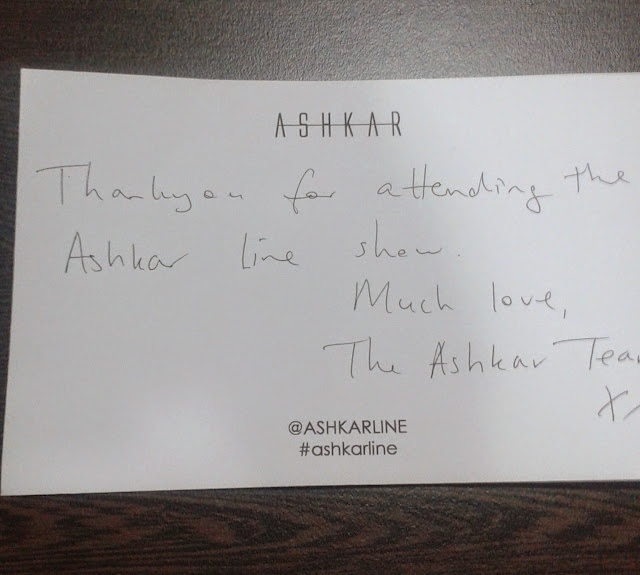 ASHKAR
Thankyou for attending the
Ashkar line show.
Much love,
The Ashkar Tea
X
@ASHKARLINE
#ashkarline